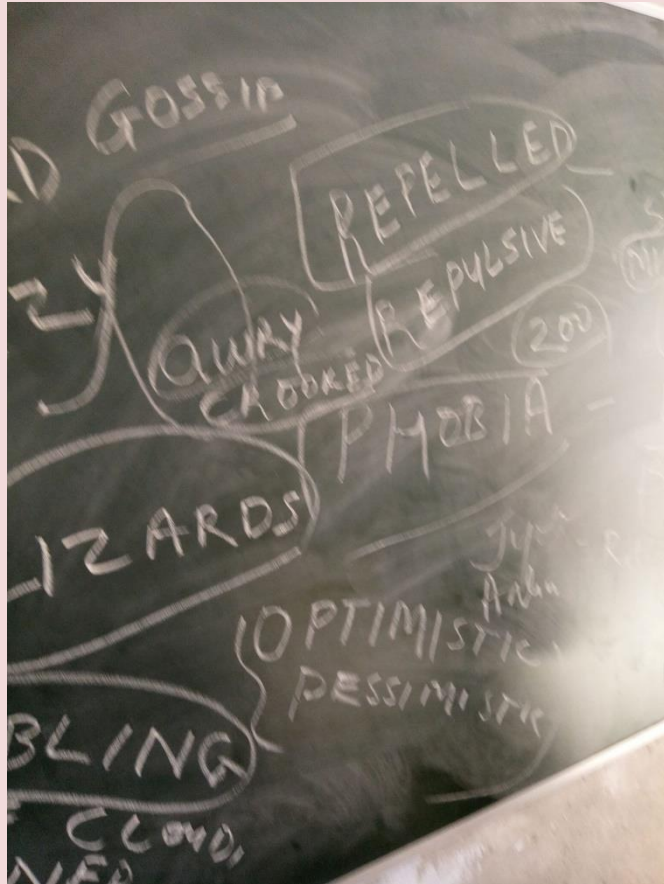 GOSSIP
REPELLED
REPULSIVE
AWRY
CROOKED
200
PHOBIA -
IZARDS
OPTIMISTIC
PESSIMISTIC
BLING
CLOUD,